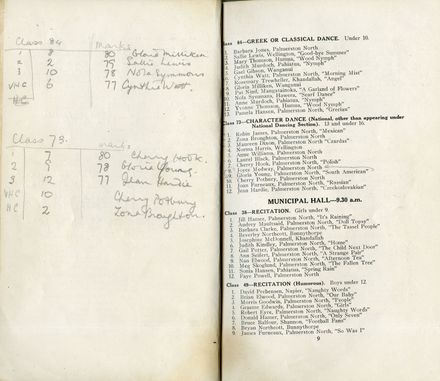 Class 84
marks
1 8 80 Gloria Milliken
2 2 79 Sallie Lewis
3 10 78 Nola Symmons
VHC 6 77 Cynthia Watt.
HC
Class 73.
marks
1 7 80 Cherry Hook.
2 9 78 Gloria Young.
3 12 77 Jean Hardie
VHC 10 Cherry Pothury
HC 2 Zona Broughton.
Class 84—GREEK OR CLASSICAL DANCE. Under 10.
1. Barbara Jones, Palmerston North
2. Sallie Lewis, Wellington, "Good-bye Summer"
3. Mary Thomson, Hunua, "Wood Nymph"
4. Judith Murdoch, Pahiatua, "Nymph"
5. Gael Gibson, Wanganui
6. Cynthia Watt, Palmerston North, "Morning Mist"
7. Rosemary Trewheller, Khandallah, "Angel"
8. Gloria Milliken, Wanganui
9. Pat Nind, Mangatainoka, "A Garland of Flowers"
10. Nola Symmans, Hawera, "Scarf Dance"
11. Anne Murdoch, Pahiatua, "Nymph"
12. Yvonne Thomson, Hunua, "Wood Nymph"
13. Pamela Hansen, Palmerston North, "Grecian"
Class 73—CHARACTER DANCE (National, other than appearing under
National Dancing Section). 13 and under 16.
1. Robin James, Palmerston North, "Mexican"
2. Zona Broughton, Palmerston North
3. Maureen Dixon, Palmerston North "Czardas"
4. Norma Harris, Wellington
5. Anne Williams, Palmerston North
6. Laurel Black, Palmerston North
7. Cherry Hook, Palmerston North, "Polish"
8. Joyce Mudway, Palmerston North
9. Gloria Young, Palmerston North, "South American"
10. Cherry Pothury, Palmerston North
11. Joan Farneaux, Palmerston North, "Russian"
12. Jean Hardie, Palmerston North, "Czechoslovakian"
MUNICIPAL HALL—9.30 a.m.
Class 38—RECITATION. Girls under 9.
1. Jill Hatner, Palmerston North, "It's Raining"
2. Audrey Maultsaid, Palmerston North, "Doll Topsy"
3. Barbara Clarke, Palmerston North, "The Tassel People"
4. Beverley Northcott, Bunnythorpe
5. Josephine McDonnell, Khandallah
6. Judith Kindley, Palmerston North, "Home"
7. Gail Potter, Palmerston North, "The Child Next Door"
8. Ann Seifert, Palmerston North, "A Strange Pair"
9. Nan Elwood, Palmerston North, "Afternoon Tea"
10. Meg Skoglund, Palmerston North, "The Fallen Tree"
11. Sonia Hansen, Pahiatua, "Spring Rain"
12. Faye Powell, Palmerston North
Class 49—RECITATION (Humorous). Boys under 12.
1. David Perhensen, Napier, "Naughty Words"
2. Brian Elwood, Palmerston North, "Our Baby"
3. Morris Goodwin, Palmerston North, "People"
4. Graeme Edwards, Palmerston North, "Girls"
5. Robert Eyre, Palmerston North, "Naughty Words"
6. Donald Hamer, Palmerston North, "Only Seven"
7. Bruce Balfour, Shannon, "Football Fans"
8. Bryan Northcott, Bunnythorpe
9. James Furneaux, Palmerston North, "So Was I"
9